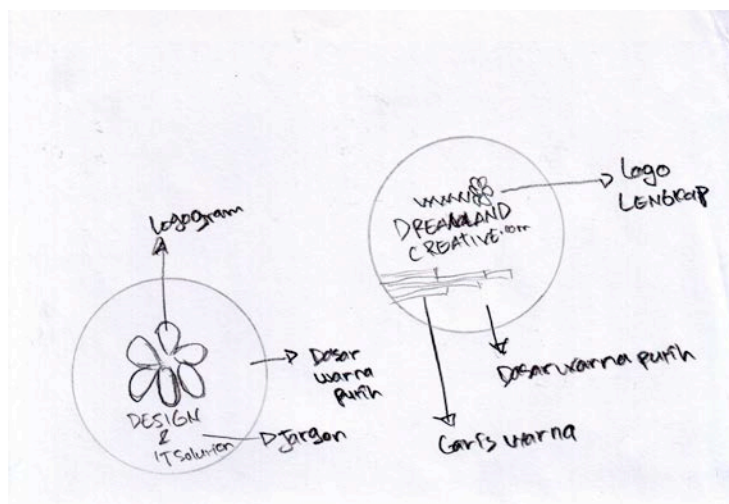 Logogram
DESIGN
&
IT Solution
Dasar
warna
putih
Jargon
www.
DREAMLAND
CREATIVE.com
Logo
LENGKAP
Dasar warna putih
Garis warna